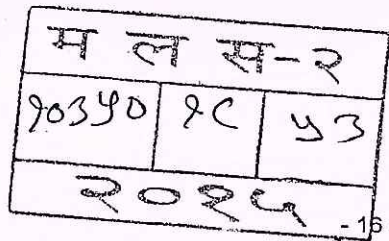 म ल स-२
१०३५० १८ ५३
२०२५
- 15